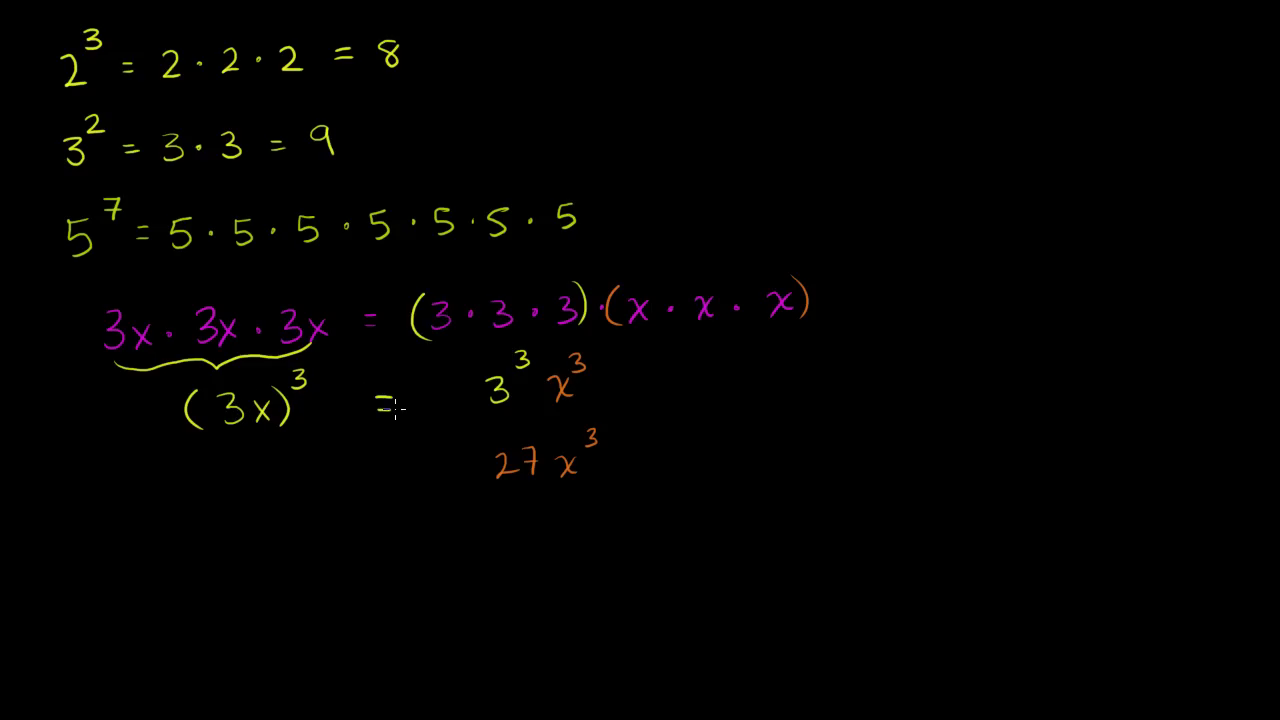 2³ = 2 · 2 · 2 = 8
3² = 3 · 3 = 9
5⁷ = 5 · 5 · 5 · 5 · 5 · 5 · 5
3x · 3x · 3x = (3 · 3 · 3) · (x · x · x)
(3x)³ = 3³ x³
27 x³